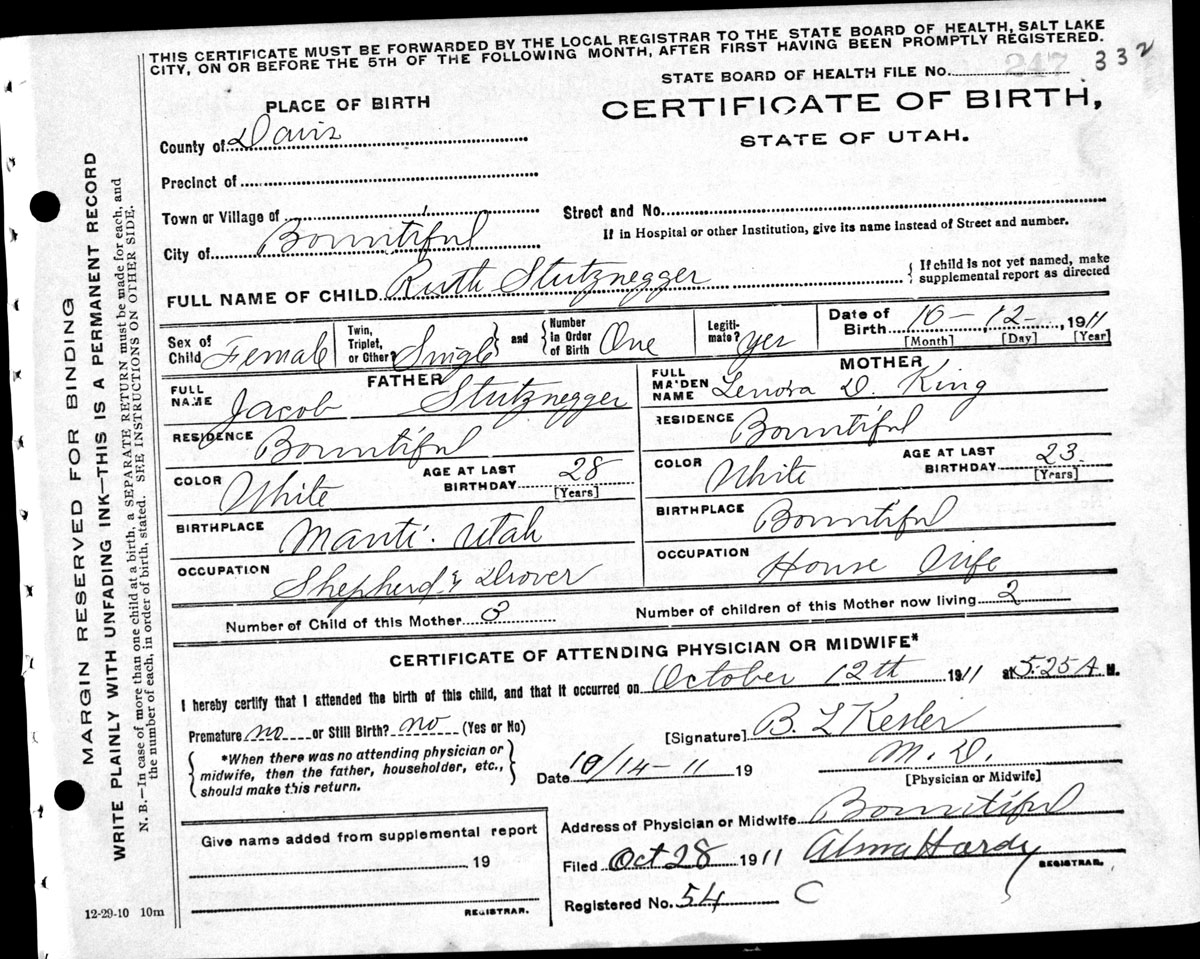 THIS CERTIFICATE MUST BE FORWARDED BY THE LOCAL REGISTRAR TO THE STATE BOARD OF HEALTH, SALT LAKE
CITY, ON OR BEFORE THE 5TH OF THE FOLLOWING MONTH, AFTER FIRST HAVING BEEN PROMPTLY REGISTERED.
STATE BOARD OF HEALTH FILE NO. 247 332
PLACE OF BIRTH
CERTIFICATE OF BIRTH,
STATE OF UTAH.
County of Davis
Precinct of
Town or Village of
Street and No.
City of Bountiful
If in Hospital or other Institution, give its name instead of Street and number.
FULL NAME OF CHILD Ruth Stutznegger
{ If child is not yet named, make
supplemental report as directed
Sex of
Child Female
Twin,
Triplet,
or Other? Single
and
Number
in Order
of Birth One
Legiti-
mate? yes
Date of
Birth 10 - 12 - 1911
[Month] [Day] [Year]
FATHER
FULL
NAME Jacob Stutznegger
MOTHER
FULL
MAIDEN
NAME Lenora D. King
RESIDENCE Bountiful
RESIDENCE Bountiful
COLOR White
AGE AT LAST
BIRTHDAY 28
[Years]
COLOR White
AGE AT LAST
BIRTHDAY 23
[Years]
BIRTHPLACE Manti. Utah
BIRTHPLACE Bountiful
OCCUPATION Shepherd & Drover
OCCUPATION House Wife
Number of Child of this Mother 3
Number of children of this Mother now living 2
CERTIFICATE OF ATTENDING PHYSICIAN OR MIDWIFE*
I hereby certify that I attended the birth of this child, and that it occurred on October 12th 1911 at 5:25 A M.
Premature no or Still Birth? no (Yes or No)
[Signature] B. L Kesler
M. D.
[Physician or Midwife]
*When there was no attending physician or
midwife, then the father, householder, etc.,
should make this return.
Date 10/14-11 19
Address of Physician or Midwife Bountiful
Give name added from supplemental report
19
REGISTRAR.
Filed Oct 28 1911 Alma Hardy
REGISTRAR.
Registered No. 54 C
12-29-10 10m
MARGIN RESERVED FOR BINDING
WRITE PLAINLY WITH UNFADING INK—THIS IS A PERMANENT RECORD
N. B.—In case of more than one child at a birth, a SEPARATE RETURN must be made for each, and
the number of each, in order of birth, stated. SEE INSTRUCTIONS ON OTHER SIDE.